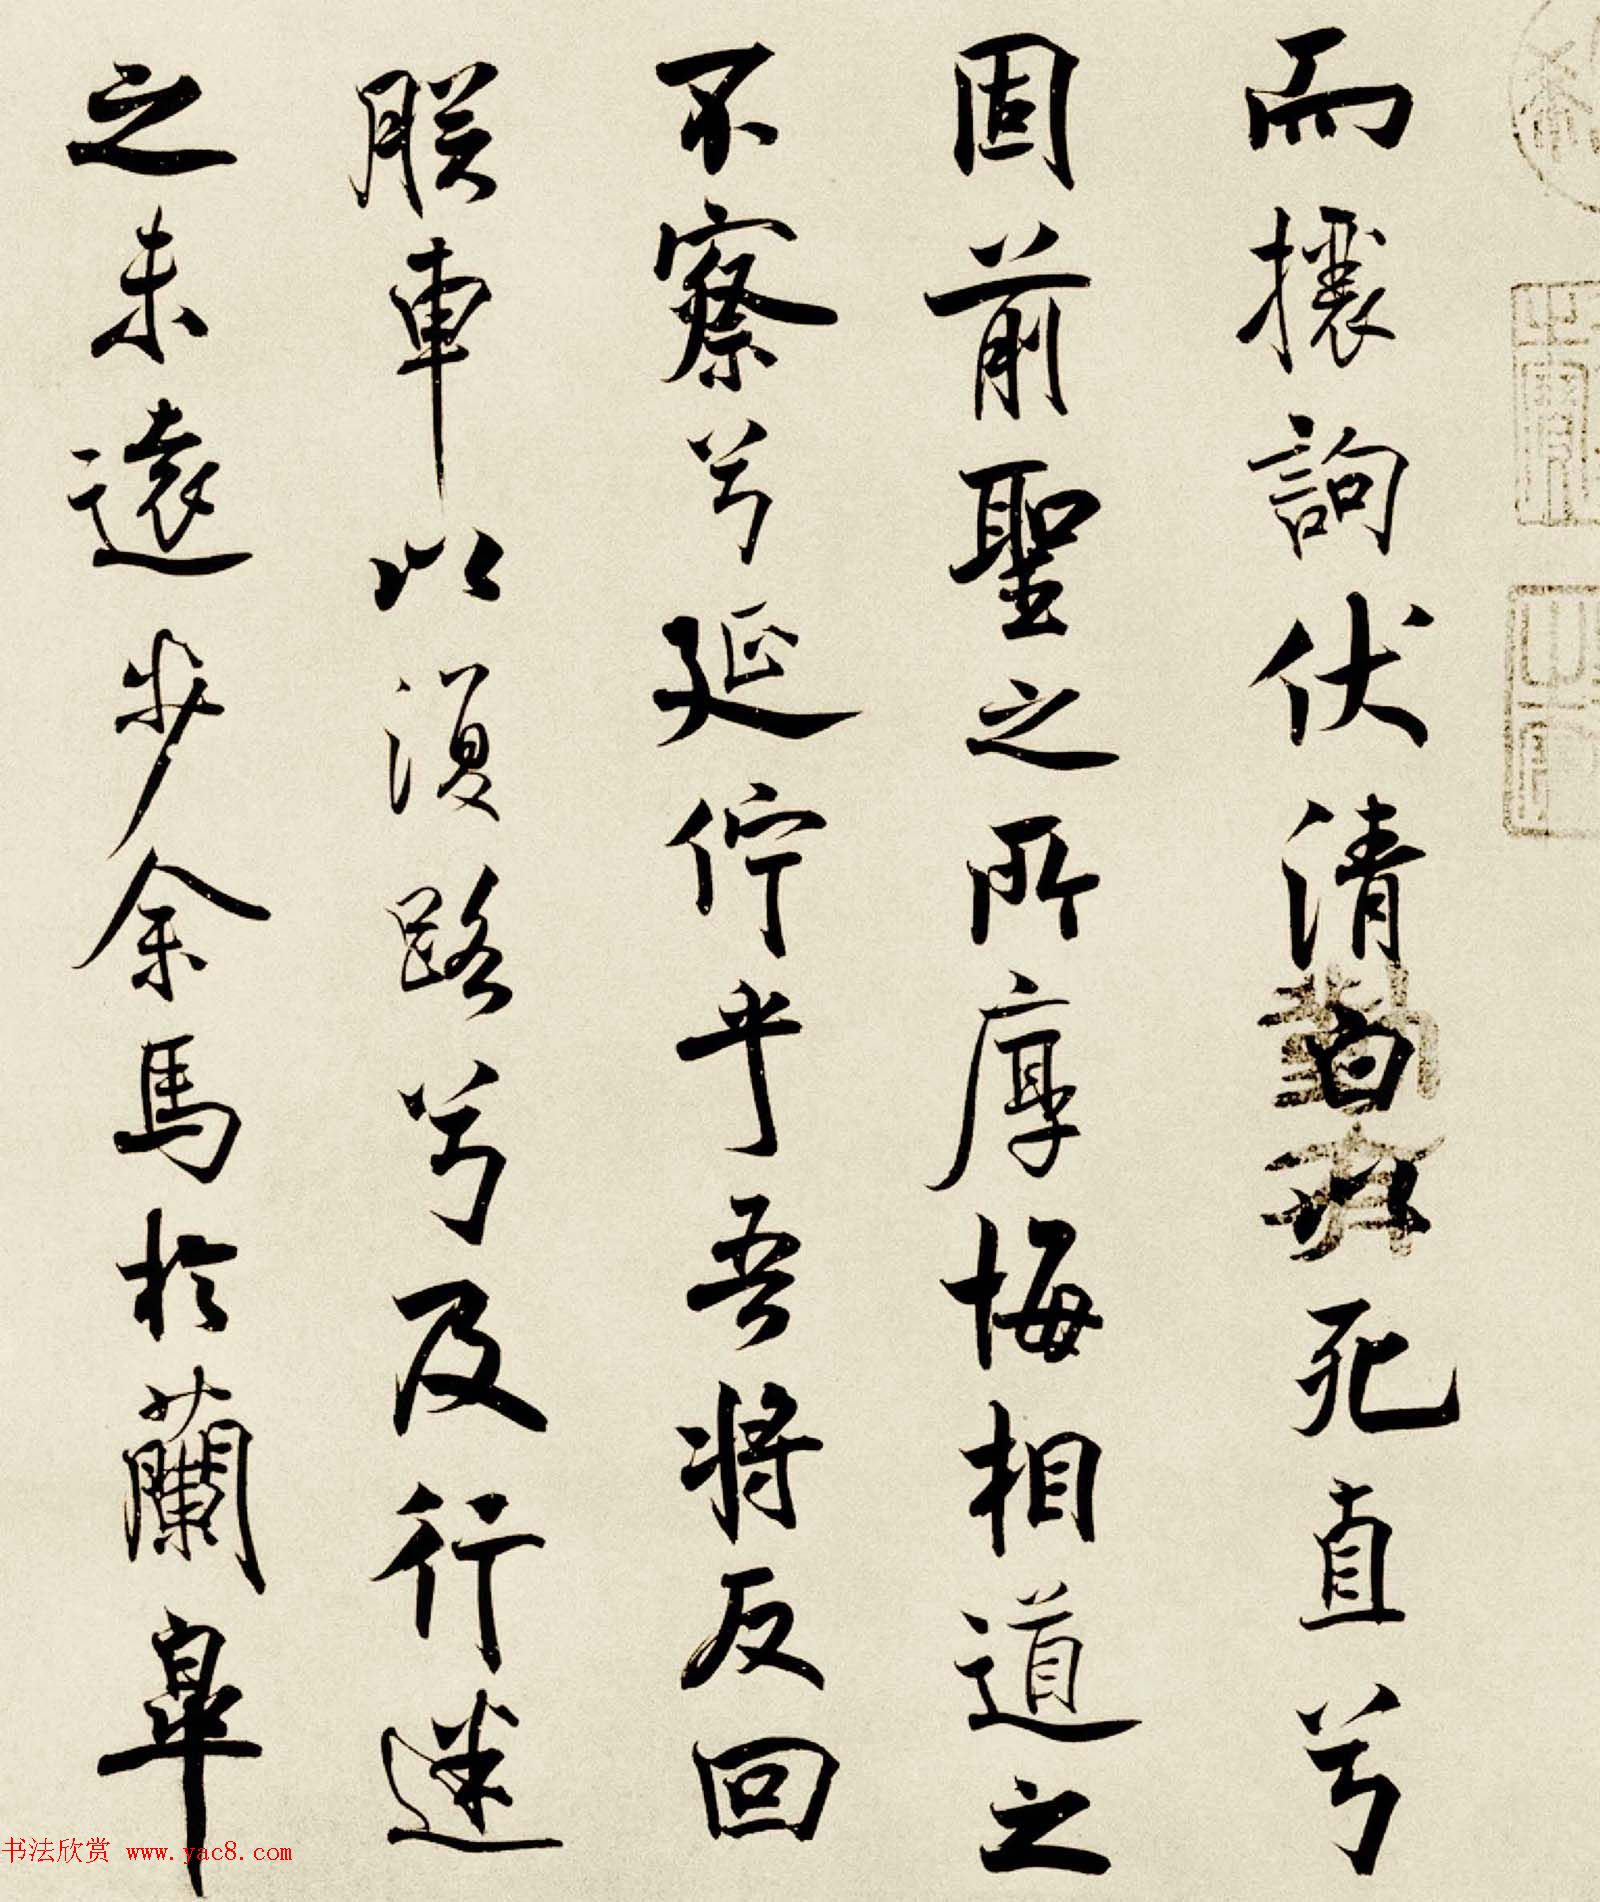 而攘訽伏清白以死直兮
固前聖之所厚悔相道之
不察兮延佇乎吾将反回
朕車以復路兮及行迷
之未遠步余馬於蘭皐
书法欣赏 www.yac8.com